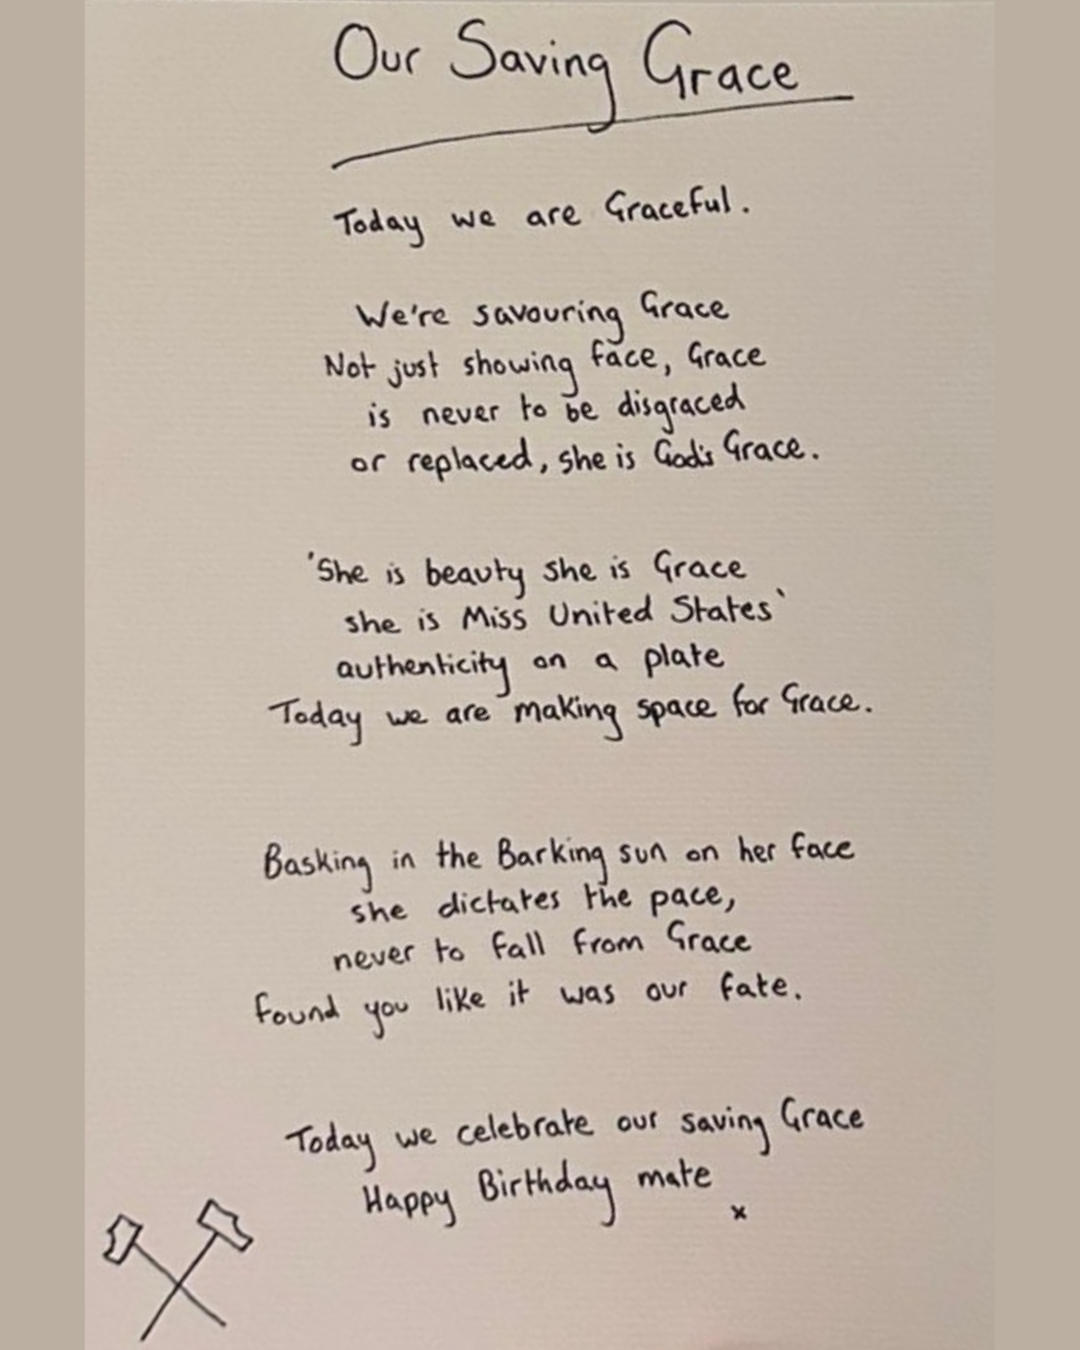 Our Saving Grace
Today we are Graceful.
We're savouring Grace
Not just showing face, Grace
is never to be disgraced
or replaced, she is God's Grace.
'She is beauty she is Grace
she is Miss United States'
authenticity on a plate
Today we are making space for Grace.
Basking in the Barking sun on her face
she dictates the pace,
never to fall from Grace
found you like it was our fate.
Today we celebrate our saving Grace
Happy Birthday mate
x